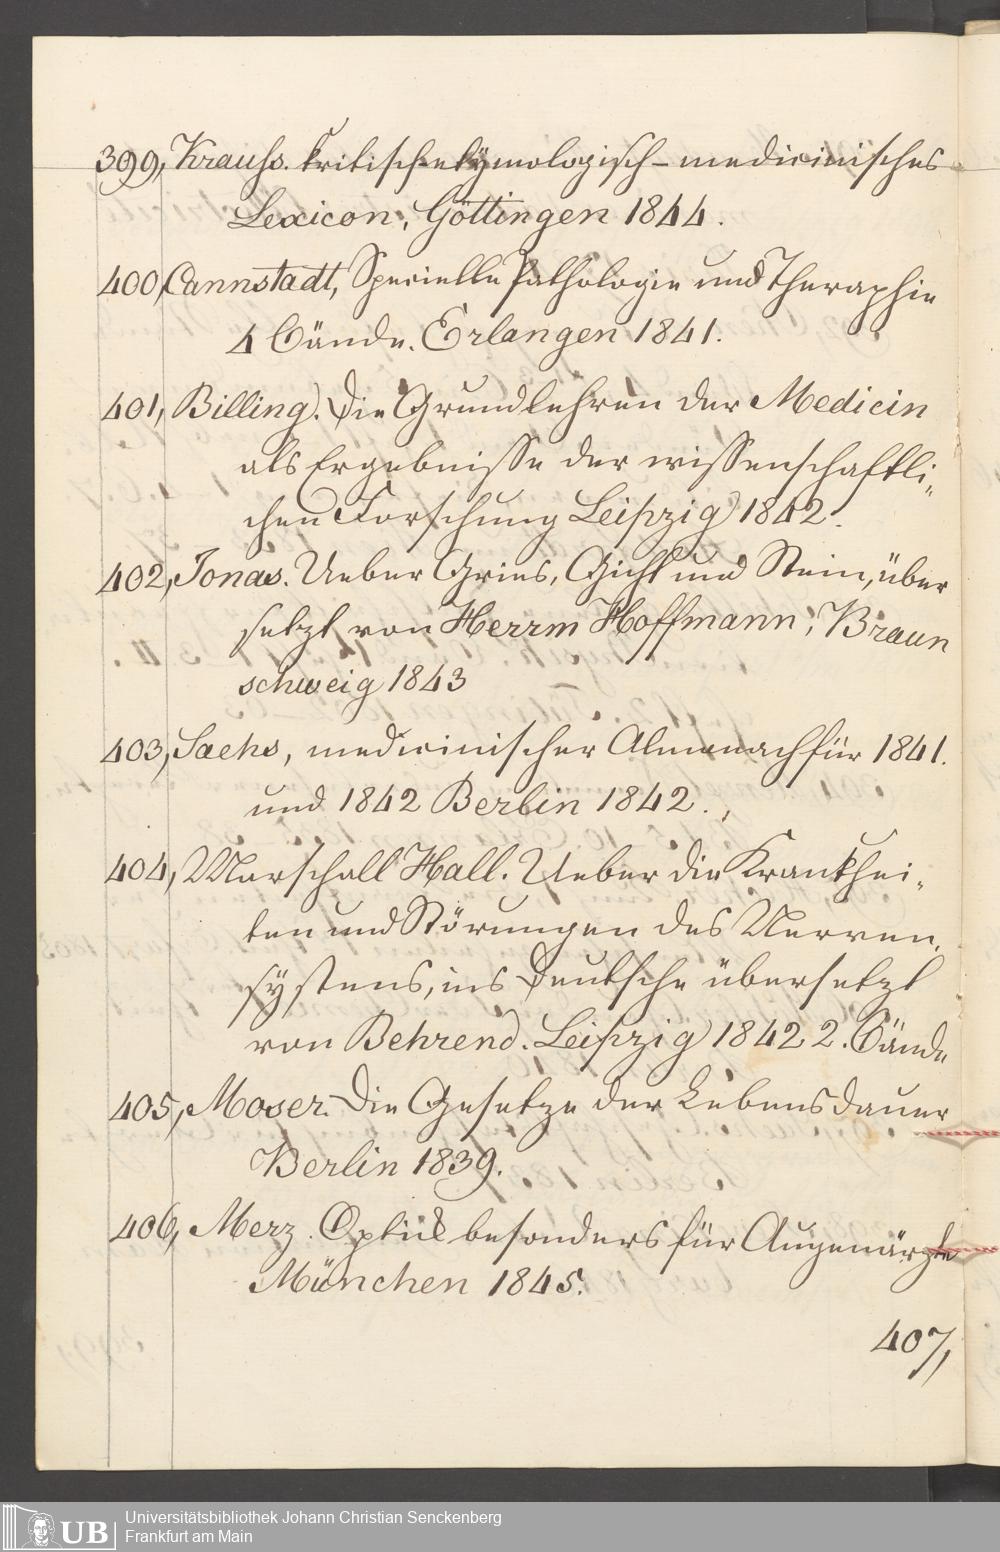 399, Krauss. kritisch-etymologisch-medicinisches
Lexicon, Göttingen 1844.
400, Cannstadt, Specielle Pathologie und Theraphie
4 Bände. Erlangen 1841.
401, Billing. Die Grundlehren der Medicin
als Ergebnisse der wissenschaftli-
chen Forschung Leipzig 1842.
402, Jonas. Ueber Gries, Gicht und Stein, über
setzt von Herrm Hoffmann, Braun
schweig 1843
403, Sachs, medicinischer Almanach für 1841.
und 1842 Berlin 1842.
404, Marschall Hall. Ueber die Krankhei-
ten und Störungen des Nerven-
systems, ins Deutsche übersetzt
von Behrend. Leipzig 1842 2. Bände
405, Moser. Die Gesetze der Lebensdauer
Berlin 1839.
406, Merz. Optik besonders für Augenärzte
München 1845.
407,
UB
Universitätsbibliothek Johann Christian Senckenberg
Frankfurt am Main